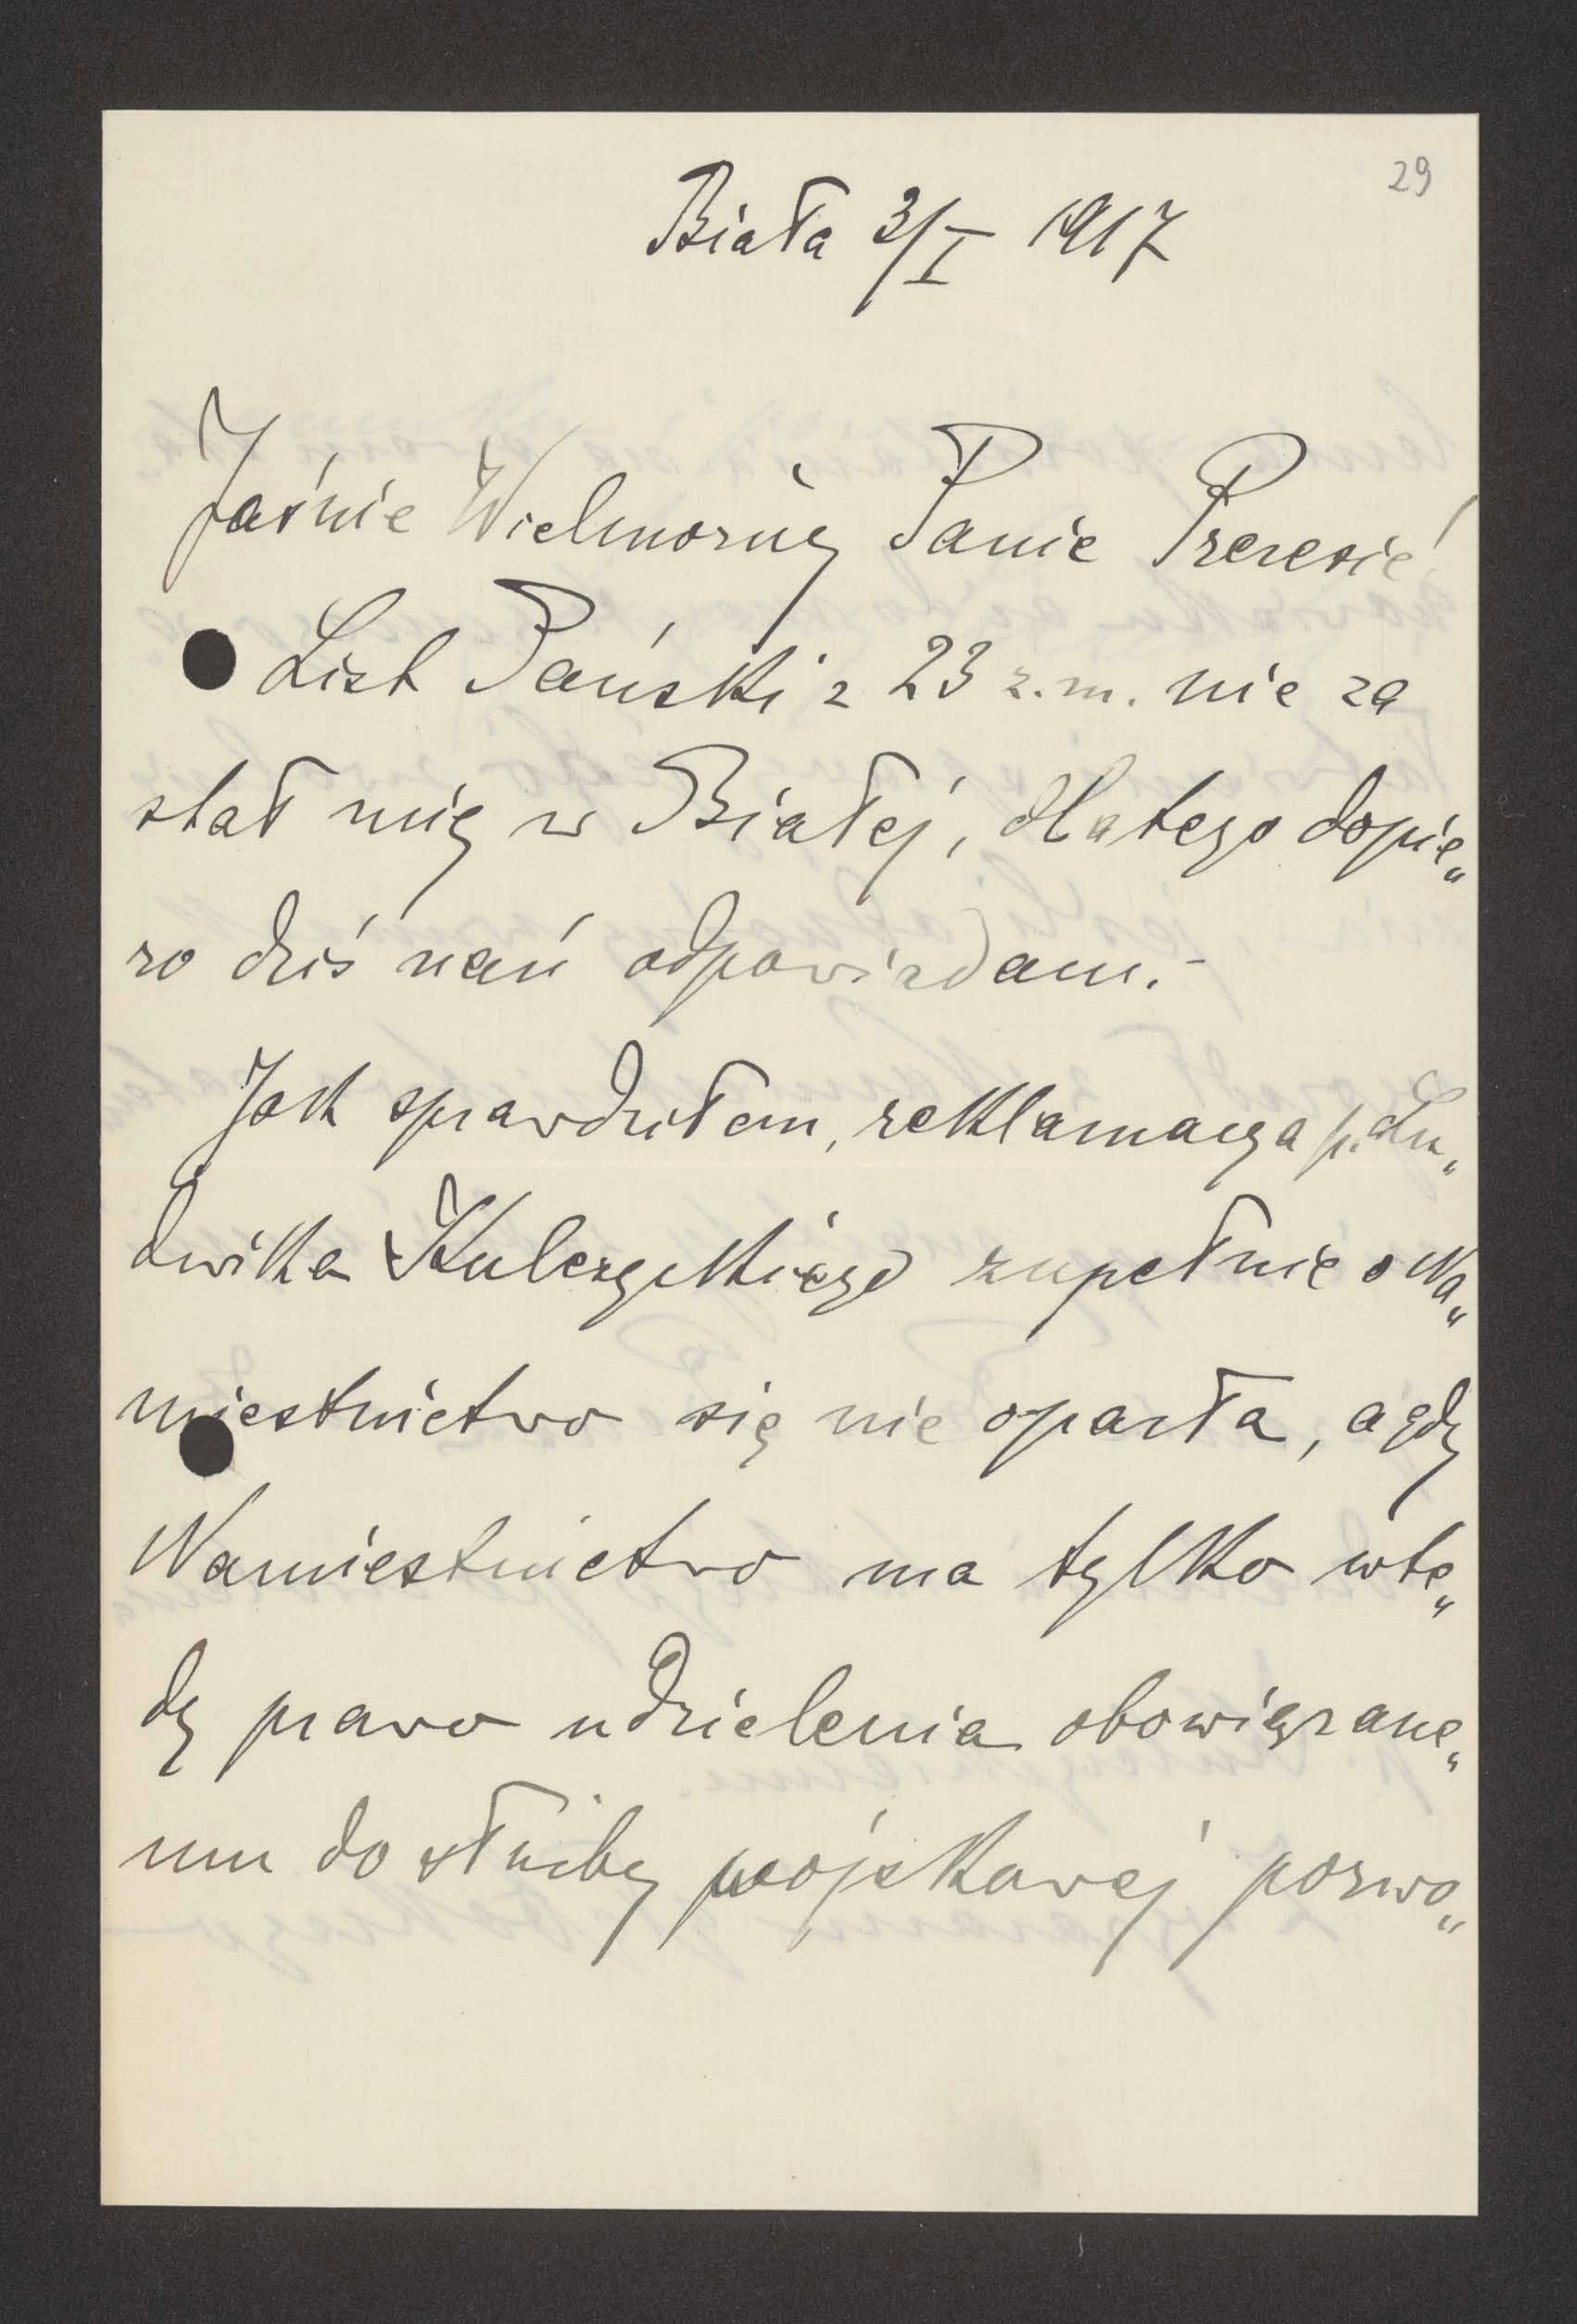 29
Biała 3/I 1917
Jaśnie Wielmożny Panie Prezesie!
List Pański z 23 z.m. nie za
stał mię w Białej, dlatego dopie„
ro dziś nań odpowiadam.-
Jak sprawdziłem, reklamacya p. Lu„
dwika Kulczyckiego zupełnie o Na„
miestnictwo się nie oparła, a gdy
Namiestnictwo ma tylko wte„
dy prawo udzielenia obowiązane„
mu do służby wojskowej pozwo„